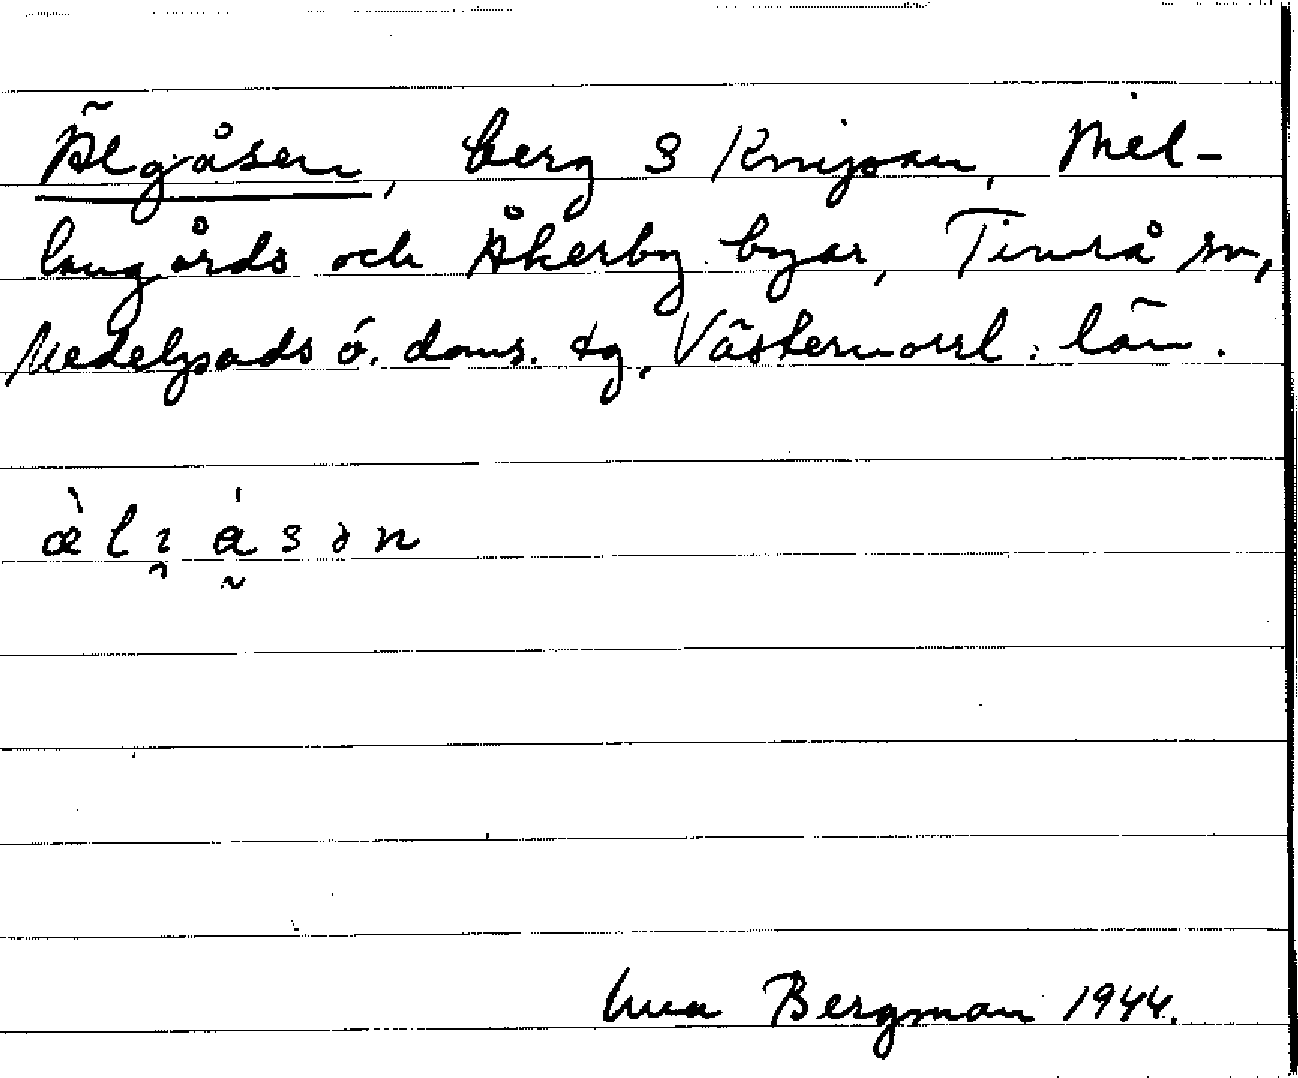 Älgåsen, berg S Knipan, Mel-
langårds och Åkerby byar, Timrå sn,
Medelpads ö. doms. tg. Västernorrl. län.
æ̀lı̯ásən
Bergman 1944.